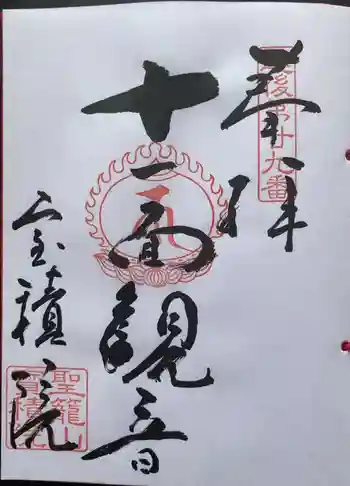 奉拝
越後第廿九番
十一面観音
宝積院
聖籠山
宝積院